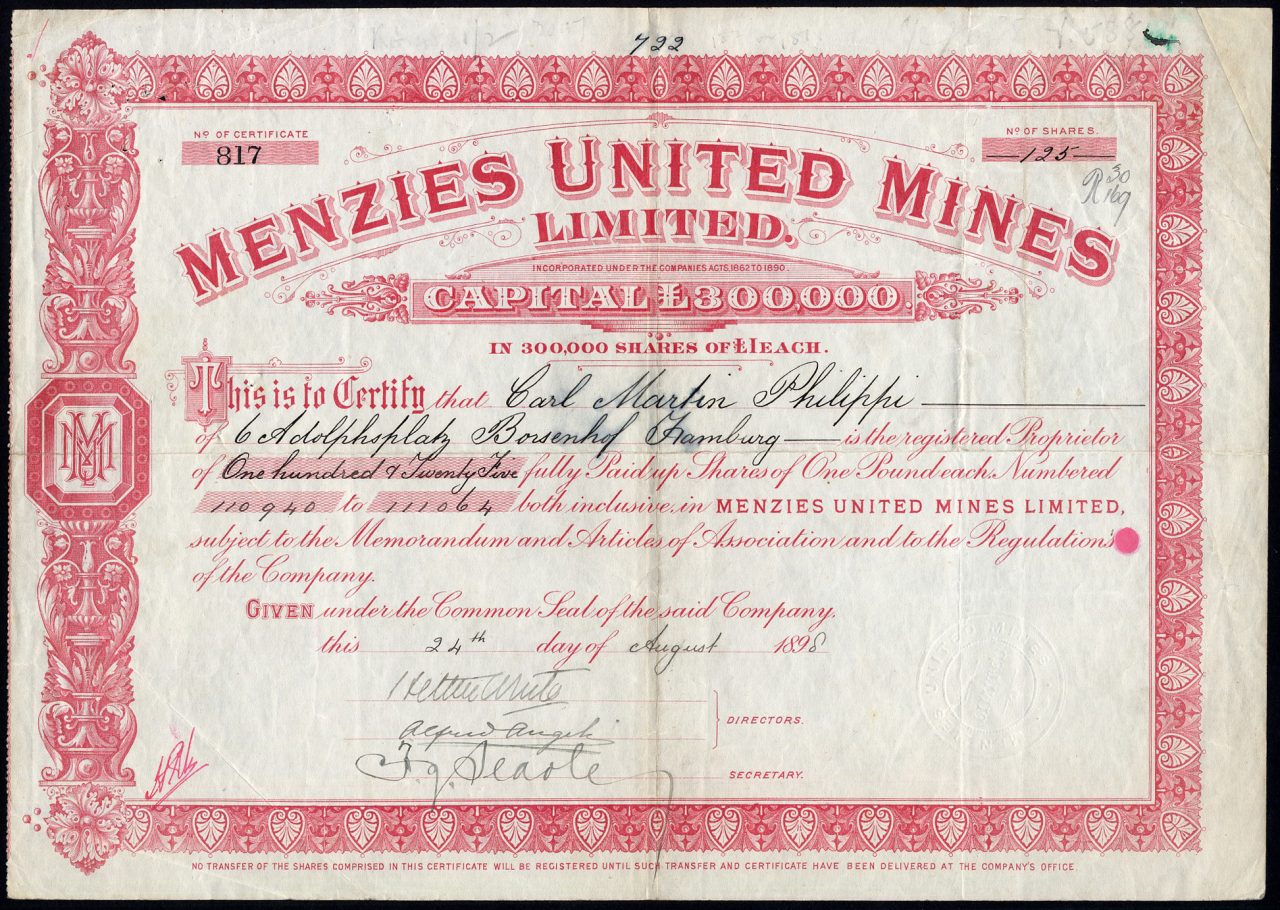 722
Nº OF CERTIFICATE
817
Nº OF SHARES.
125
R 30
169
MENZIES UNITED MINES
LIMITED.
INCORPORATED UNDER THE COMPANIES ACTS, 1862 TO 1890.
CAPITAL £300,000.
IN 300,000 SHARES OF £1 EACH.
This is to Certify that Carl Martin Philippi
of 6 Adolphsplatz Borsenhof Hamburg is the registered Proprietor
of One hundred & Twenty Five fully Paid up Shares of One Pound each. Numbered
110940 to 111064 both inclusive, in MENZIES UNITED MINES LIMITED,
subject to the Memorandum and Articles of Association and to the Regulations
of the Company.
GIVEN under the Common Seal of the said Company.
this 24th day of August 1898
Alfred
DIRECTORS.
SECRETARY.
NO TRANSFER OF THE SHARES COMPRISED IN THIS CERTIFICATE WILL BE REGISTERED UNTIL SUCH TRANSFER AND CERTIFICATE HAVE BEEN DELIVERED AT THE COMPANY'S OFFICE.